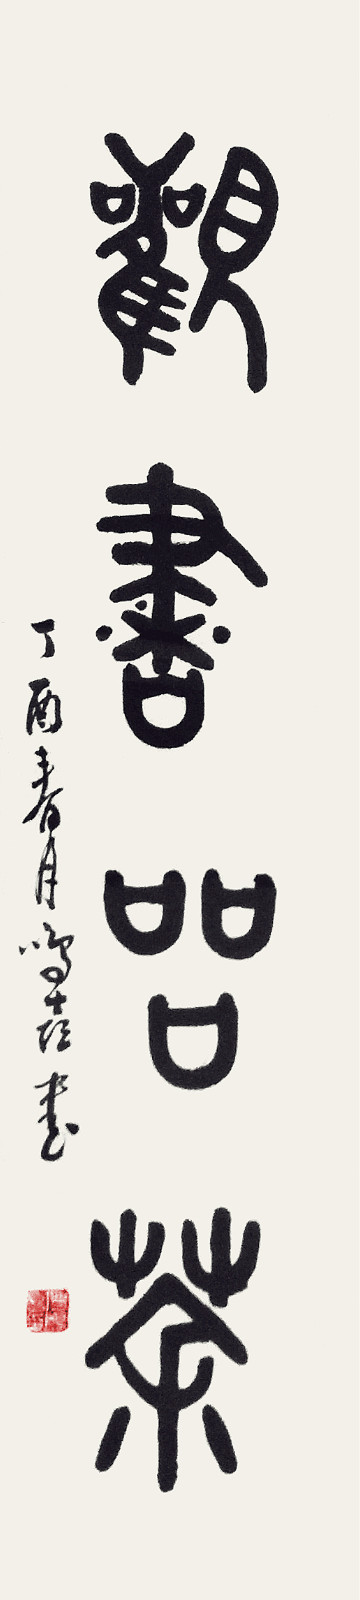 觀書品茶
丁酉春月鳴喜書